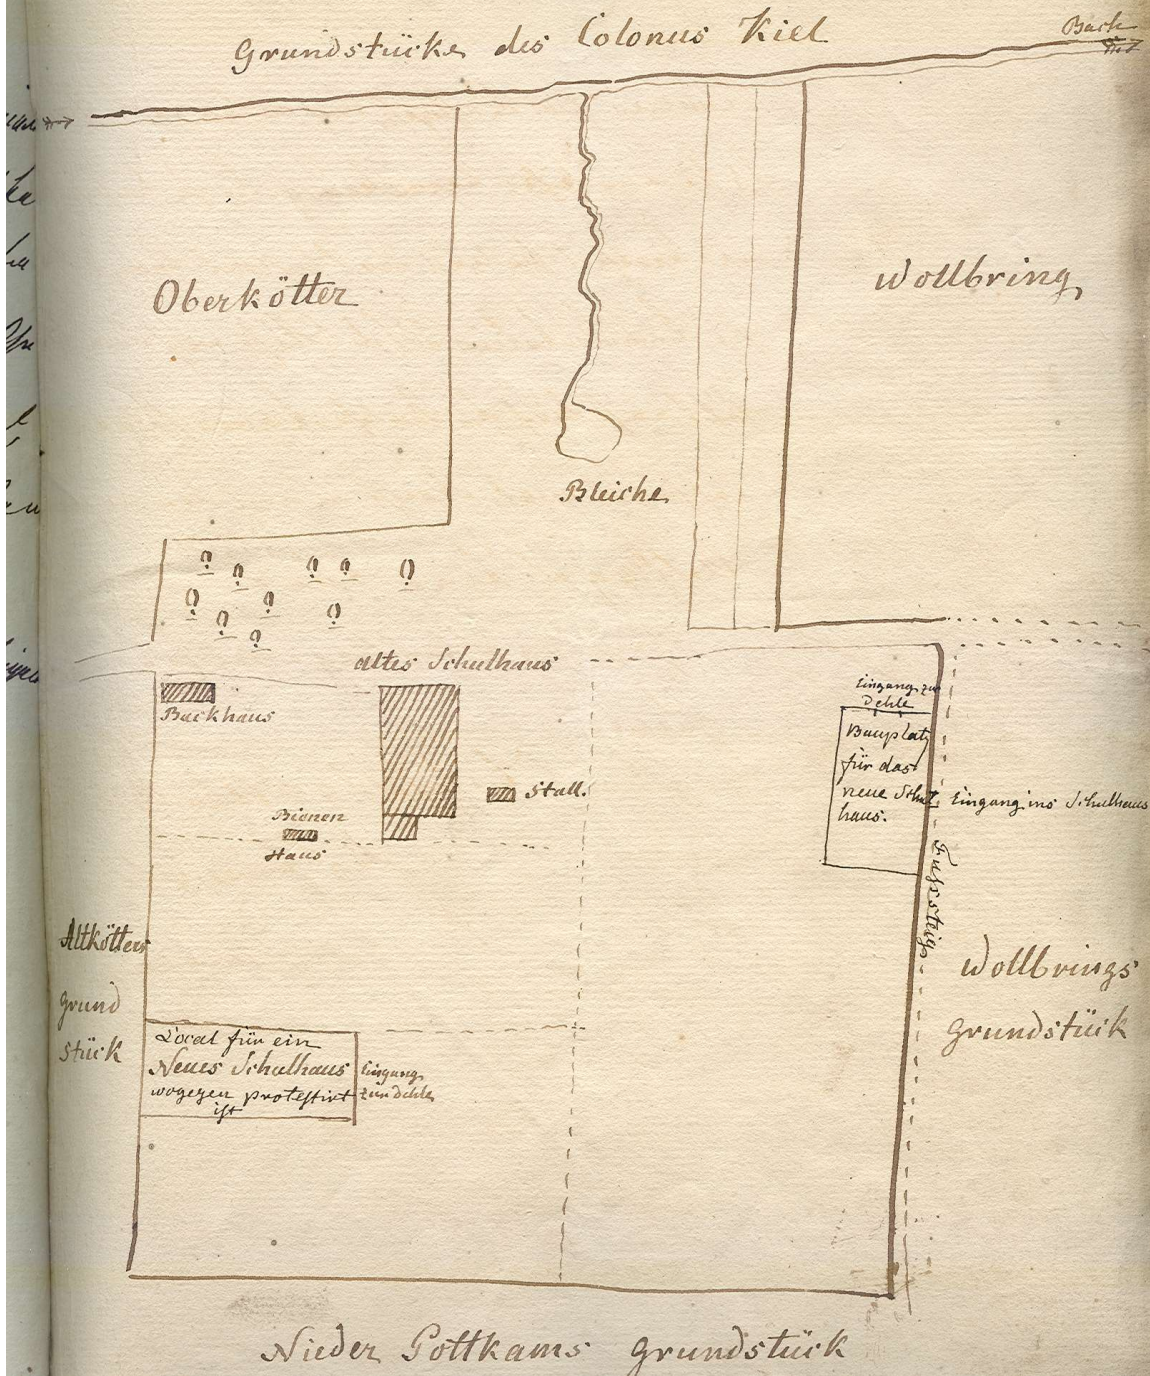 Grundstücke des Colonus Kiel
Bach
Oberkötter
Wollbring
Bleiche
altes Schulhaus
Backhaus
Stall.
Bienen
Haus
Eingang zur
Dehle
Bauplatz
für das
neue Schul
haus.
Eingang ins Schulhaus
Fussteig
Altkötters
grund
stück
Wollbrings
grundstück
Local für ein
Neues Schulhaus
wogegen protestirt
ist
Eingang
zur Dehle
Nieder Pottkams grundstück